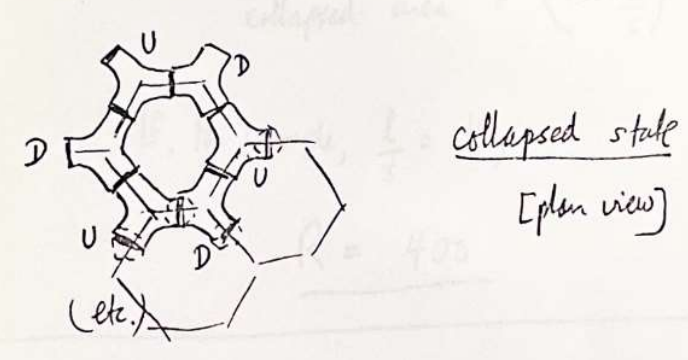 U
D
D
U
U
D
(etc.)
collapsed state
[plan view]